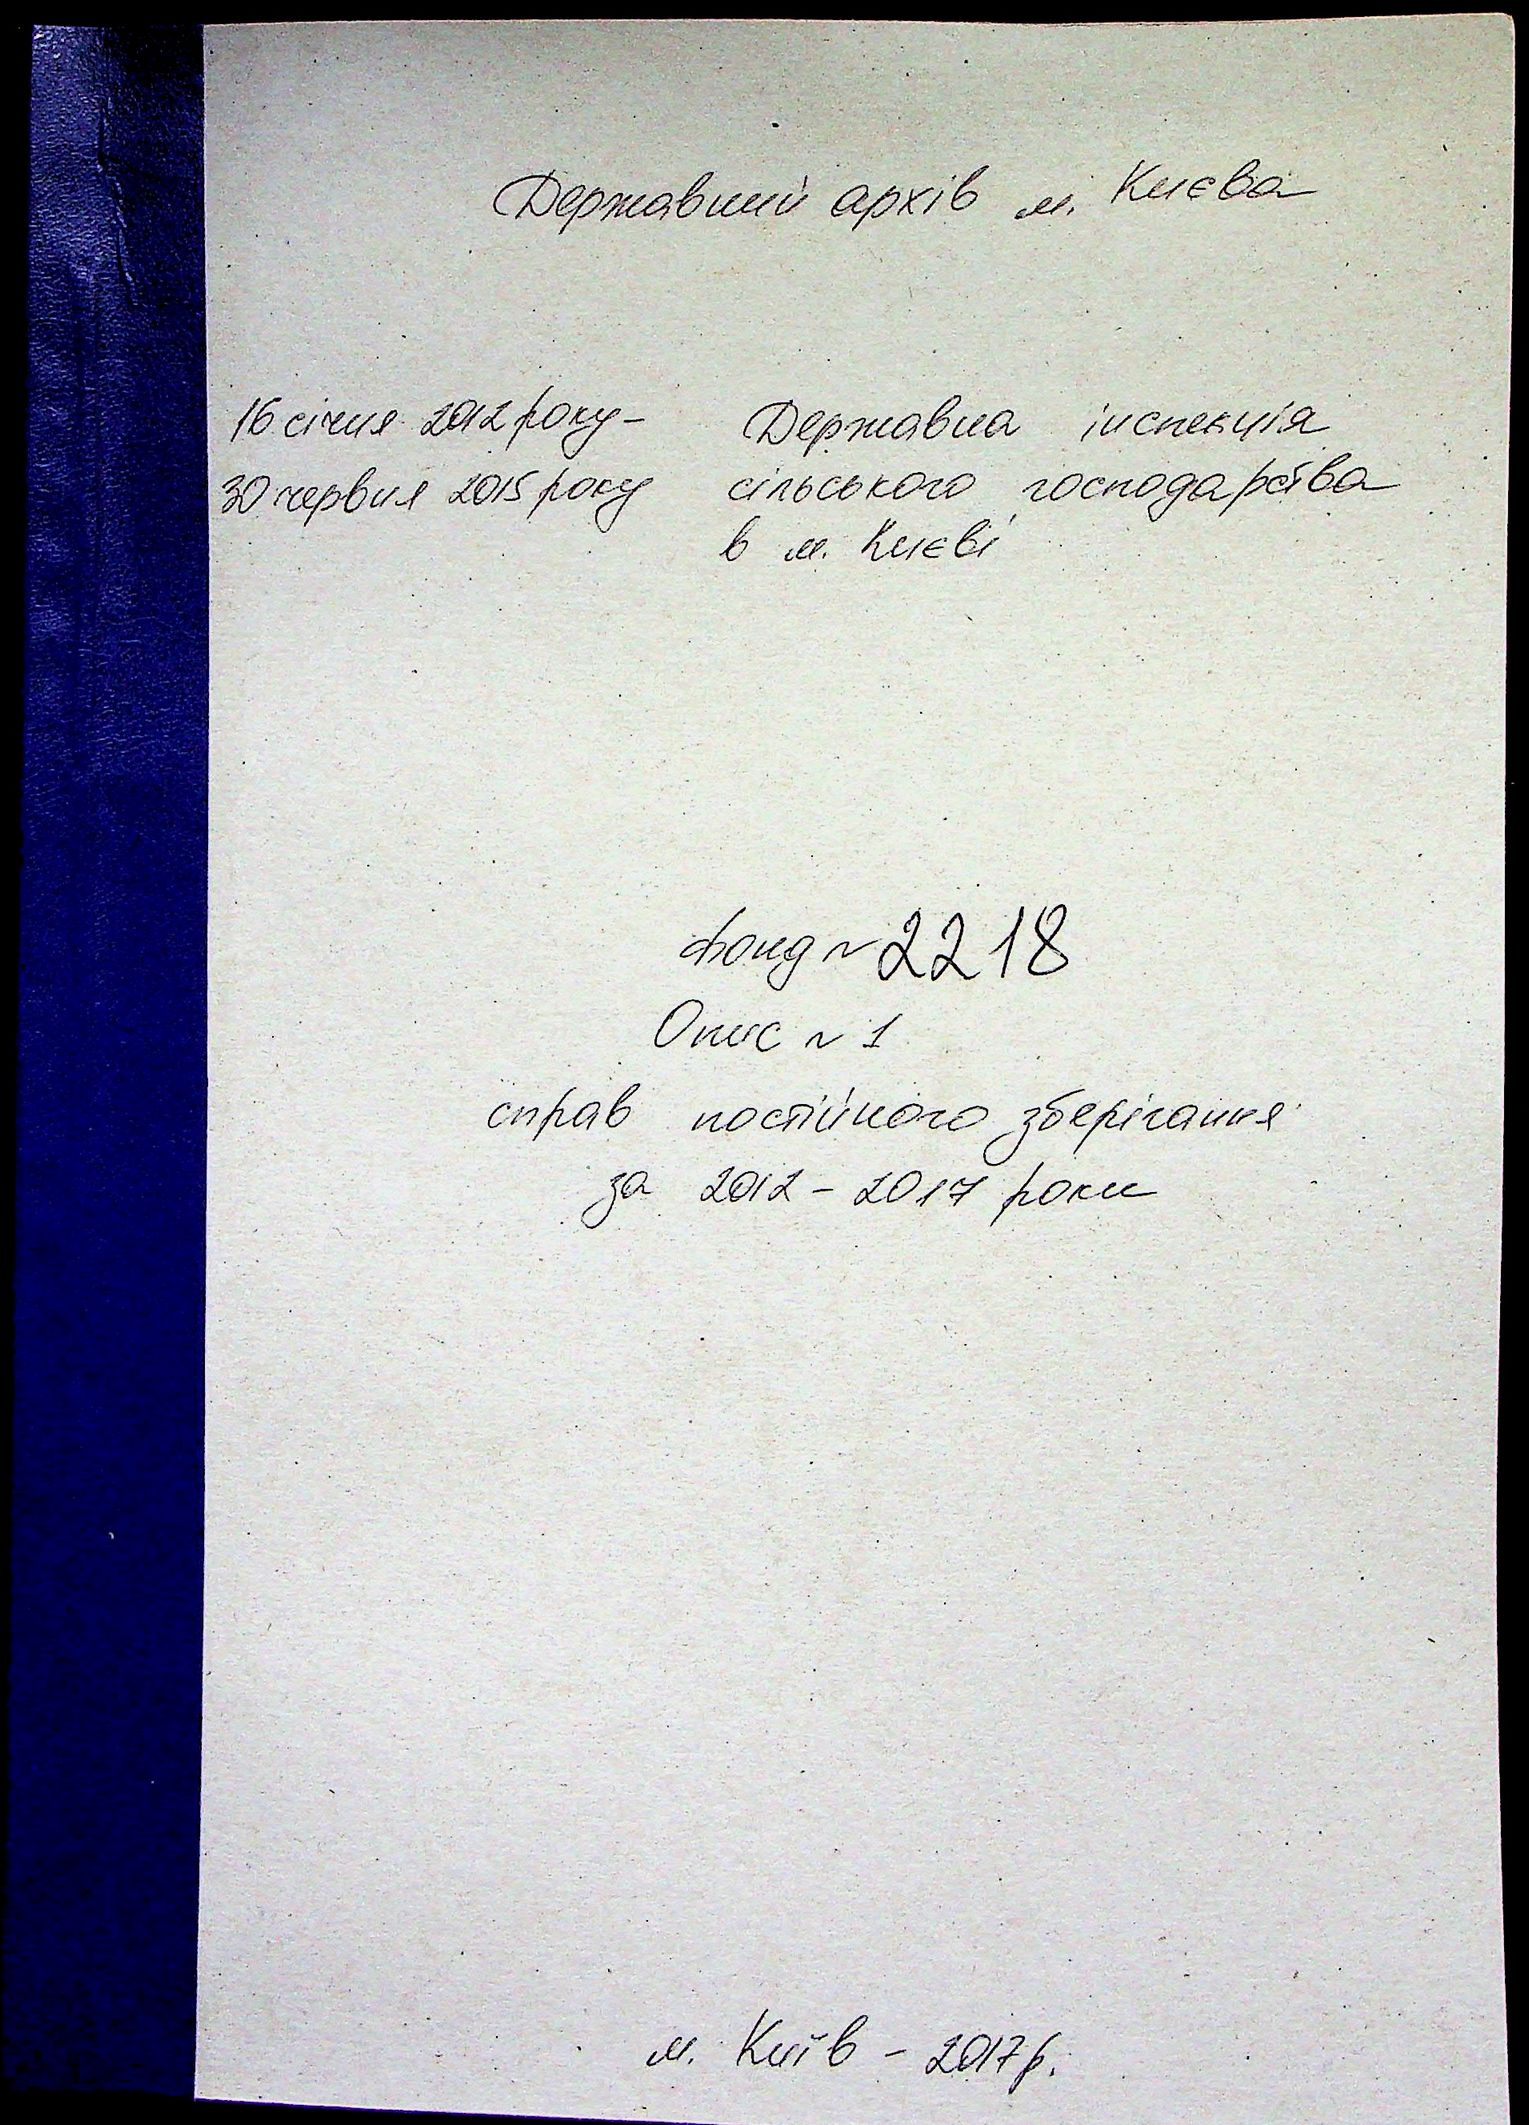 Державний архів м. Києва
16 січня 2012 року –
30 червня 2015 року
Державна інспекція
сільського господарства
в м. Києві
Фонд № 2218
Опис № 1
справ постійного зберігання
за 2012 – 2017 роки
м. Київ – 2017 р.